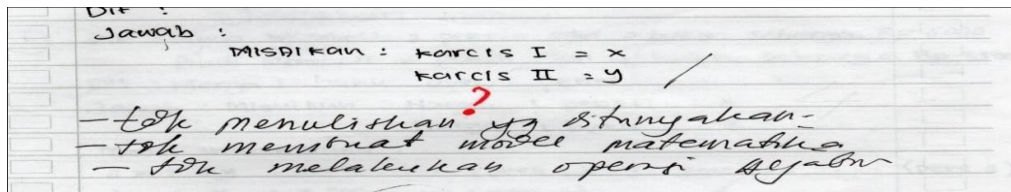 Dit :
Jawab :
Misalkan : karcis I = x
karcis II = y
?
- tdk menuliskan yg ditanyakan
- tdk membuat model matematika
- tdk melakukan operasi aljabar